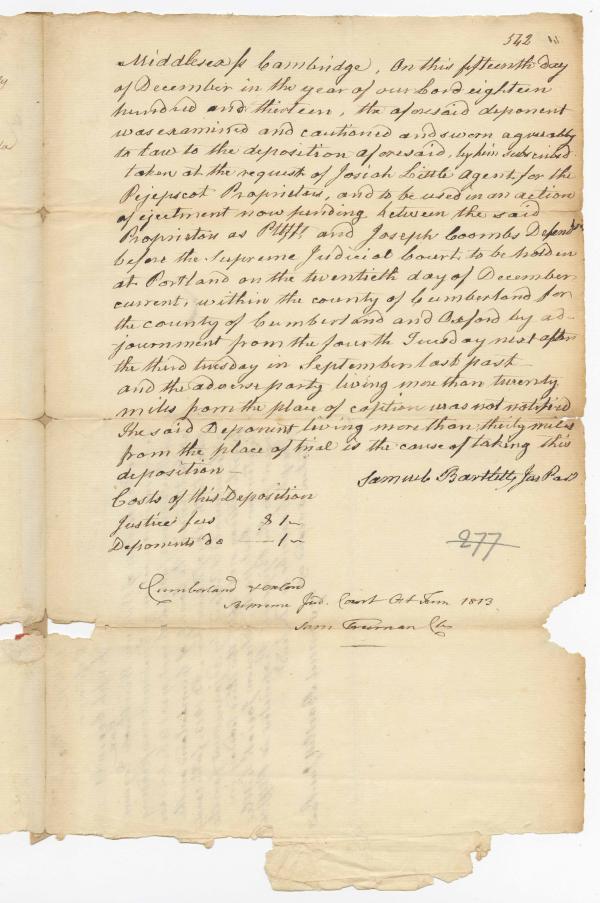 542
Middlesex ss Cambridge, On this fifteenth day
of December in the year of our Lord eighteen
hundred and thirteen, the aforesaid deponent
was examined and cautioned and sworn agreeably
to law to the deposition aforesaid, by him subscribed
taken at the request of Josiah Little Agent for the
Pejepscot Proprietors, and to be used in an action
of ejectment now pending between the said
Proprietors as Plffs. and Joseph Coombs Defendt
before the Supreme Judicial Court to be holden
at Portland on the twentieth day of December
current, within the county of Cumberland for
the county of Cumberland and Oxford by ad-
journment from the fourth Tuesday next after
the third tuesday in September last past
and the adverse party living more than twenty
miles from the place of caption was not notified
The said Deponent living more than thirty miles
from the place of trial is the cause of taking this
deposition —
Samuel Bartlett Jus Pacs
Costs of this Deposition
Justice fees $ 1 —
Deponents do — 1 —
277
Cumberland & Oxford
Supreme Jud. Court Oct Term 1813.
Sam Freeman Clk